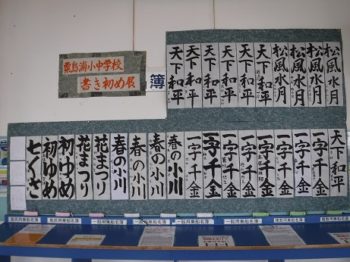 粟島浦小中学校
書き初め展
簿
松風水月
松風水月
松風水月
松風水月
天下和平
天下和平
天下和平
天下和平
天下和平
天下和平
一字千金
一字千金
一字千金
一字千金
一字千金
一字千金
一字千金
一字千金
春の小川
春の小川
春の小川
春の小川
花まつり
花まつり
初ゆめ
初ゆめ
七くさ